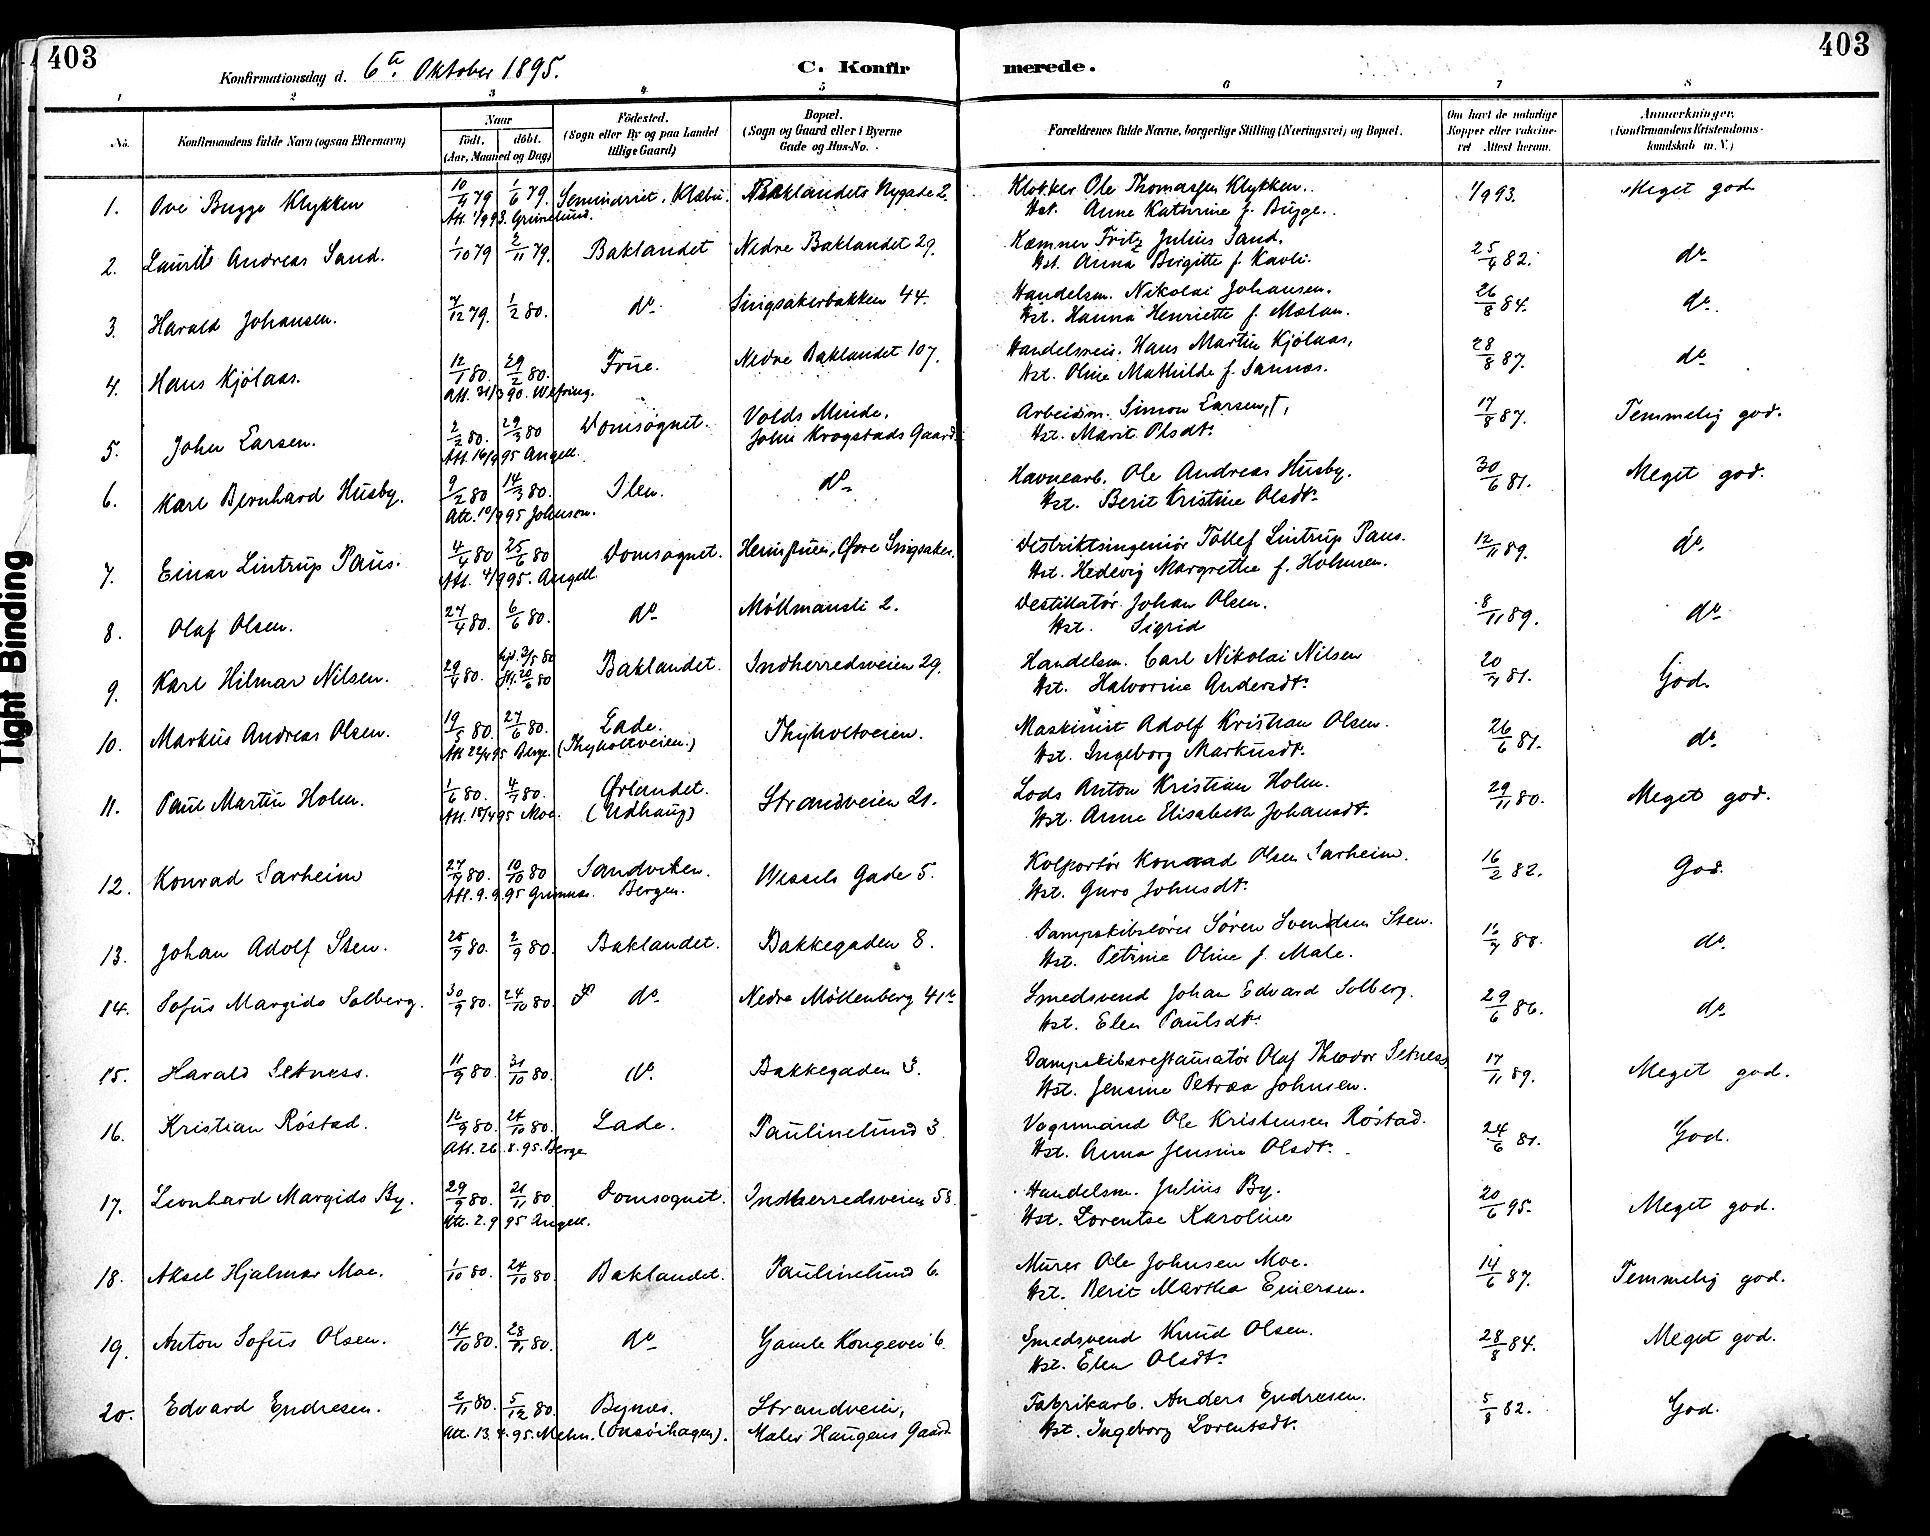 403
Konfirmationsdag d. 6te Oktober 1895.
C. Konfir
merede.
403
1 2 3 4 5 6 7 8
No.
Konfirmandens fulde Navn (ogsaa Efternavn)
Naar
födt. döbt.
(Aar, Maaned og Dag)
Födested.
(Sogn eller By og paa Landet
tillige Gaard)
Bopæl.
(Sogn og Gaard eller i Byerne
Gade og Hus-No.
Forældrenes fulde Navne, borgerlige Stilling (Næringsvei) og Bopæl.
Om havt de naturlige
Kopper eller vaccine-
ret Attest herom.
Anmærkninger.
(Konfirmandens Kristendoms-
kundskab m. V.)
1. Ove Bugge Klykken 10/4 79 1/6 79. Seminariet, Klæbu. Baklandets Nygade 2. Klokker Ole Thomassen Klykken. 1/9 93. Meget god
Att. 1/9 93. Grünelund. Hst. Anne Kathrine f. Bugge.
2. Laurits Andreas Sand. 1/10 79 2/11 79. Baklandet Nedre Baklandet 29. Kæmner Fritz Julius Sand. 25/4 82. do
Hst. Anna Birgitte f. Kavli.
3. Harald Johansen. 7/12 79. 1/2 80. do Singsakerbakken 44. Handelsm. Nikolai Johansen. 26/8 84. do
Hst. Hanna Henriette f. Mælan.
4. Hans Kjölaas. 12/1 80. 29/2 80. Frue. Nedre Baklandet 107. Handelsreis. Hans Martin Kjölaas. 28/8 87. do
Att. 31/3 90. Wefring. Hst. Oline Mathilde f. Sannæs.
5. John Larsen. 2/2 80. 29/3 80 Domsognet. Volds Minde, Arbeidsm. Simon Larsen, †, 17/8 87. Temmelig god.
Att. 14/9 95 Angell. John Krogstads Gaard. Hst. Marit Olsdt.
6. Karl Bernhard Husby. 9/2 80 14/3 80. Ilen. do Havnearb. Ole Andreas Husby. 30/6 81. Meget god.
Att. 10/9 95 Johnson. Hst. Berit Kristine Olsdt.
7. Einar Lintrup Paus. 4/4 80 25/6 80 Domsognet. Heimstuen, Øvre Singsaker. Distriktsingeniør Tollef Lintrup Paus. 12/11 89. do
Att. 4/9 95. Angell Hst. Hedevig Margrethe f. Holmsen.
8. Olaf Olsen. 27/4 80. 6/6 80. do Möllmansli 2. Destillatör Johan Olsen. 8/11 89. do
Hst. Sigrid
9. Karl Hilmar Nilsen. 29/4 80. hjd. 3/5 80 Baklandet. Indherredsveien 29. Handelsm. Carl Nikolai Nilsen 20/7 81. God.
st. 20/6 80 Hst. Halvorine Andersdt.
10. Markus Andreas Olsen. 19/5 80. 27/6 80. Lade. Thyholtveien. Maskinist Adolf Kristian Olsen. 26/6 81. do
Att 22/4 95 Berge. (Thyholtveien.) Hst. Ingeborg Markusdt.
11. Paul Martin Holm. 1/6 80. 4/7 80. Ørlandet. Strandveien 21. Lods Anton Kristian Holm. 29/11 80. Meget god.
Att. 18/4 95 Moe. (Udhaug) Hst. Anne Elisabeth Johansdt.
12. Konrad Sarheim 27/9 80. 10/10 80 Sandviken. Wessels Gade 5. Kolportör Konrad Olsen Sarheim. 16/2 82. God.
Att. 9.9.95 Grimnæs. Bergen. Hst. Guro Johnsdt.
13. Johan Adolf Sten. 25/7 80. 2/9 80. Baklandet. Bakkegaden 8. Dampskibsförer Sören Svendsen Sten. 16/7 88. do
Hst. Petrine Oline f. Male.
14. Sofus Margido Solberg. 30/9 80. 24/10 80. do Nedre Möllenberg 41 Smedsvend Johan Edvard Solberg. 29/6 86. do
Hst. Elen Paulsdt.
15. Harald Setness. 11/9 80. 31/10 80. do Bakkegaden 3. Dampskibsrestauratör Olaf Theodor Setness. 17/11 89. Meget god.
Hst. Jensine Petrea Johnsen.
16. Kristian Röstad. 12/9 80. 24/10 80. Lade. Paulinelund 3 Vognmand Ole Kristensen Röstad. 24/6 81. God.
Att. 26.8.95. Berge Hst. Anna Jensine Olsdt.
17. Leonhard Margido By. 29/9 80. 21/11 80 Domsognet. Indherredsveien 58. Handelsm. Julius By. 20/6 95. Meget god.
Att. 2.9 95 Angell. Hst. Lorentse Karoline
18. Aksel Hjalmar Moe. 1/10 80. 24/10 80 Baklandet. Paulinelund 6. Murer Ole Johnsen Moe. 14/6 87. Temmelig god.
Hst. Berit Martha Einersen.
19. Anton Sofus Olsen. 14/10 80. 28/11 80. do Gamle Kongevei 6. Smedsvend Knud Olsen. 28/8 84. Meget god.
Hst. Elen Olsdt.
20. Edvard Endresen. 2/11 80. 5/12 80. Bynes. Strandveien, Fabrikarb. Anders Endresen. 5/8 82. God.
Att. 13.4.95. Mehn. (Onsöihagen). Maler Haugens Gaard Hst. Ingeborg Lorentsdt.
Tight Binding